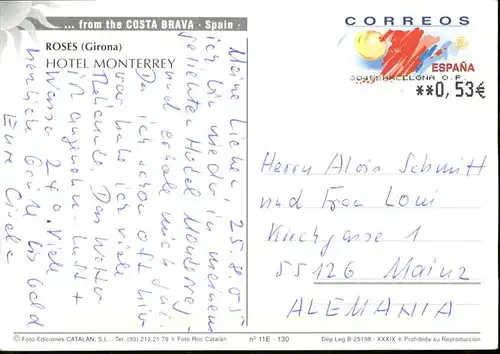 ... from the COSTA BRAVA · Spain ·
ROSES (Girona)
HOTEL MONTERREY
CORREOS
ESPAÑA
BARCELONA O.P.
**0,53€
Meine Lieben, 25.8.05
ich bin wieder in meinem
geliebten Hotel Monterrey
und erhole mich gut.
Da ich schon oft hier
war habe ich viele
Bekannte. Das Wetter
ist angenehm. Luft +
Wasser 24°. Viele
herzliche Grüße bis bald
Eure Gisela
Herrn Alois Schmitt
und Frau Loni
Kirchgasse 1
55126 Mainz
ALEMANIA
© Foto-Ediciones CATALAN, S.L. - Tel. (93) 213 21 79 * Foto Roc Catalán
nº 11E - 130
Dep. Leg. B-25198 - XXXIX * Prohibida su Reproducción